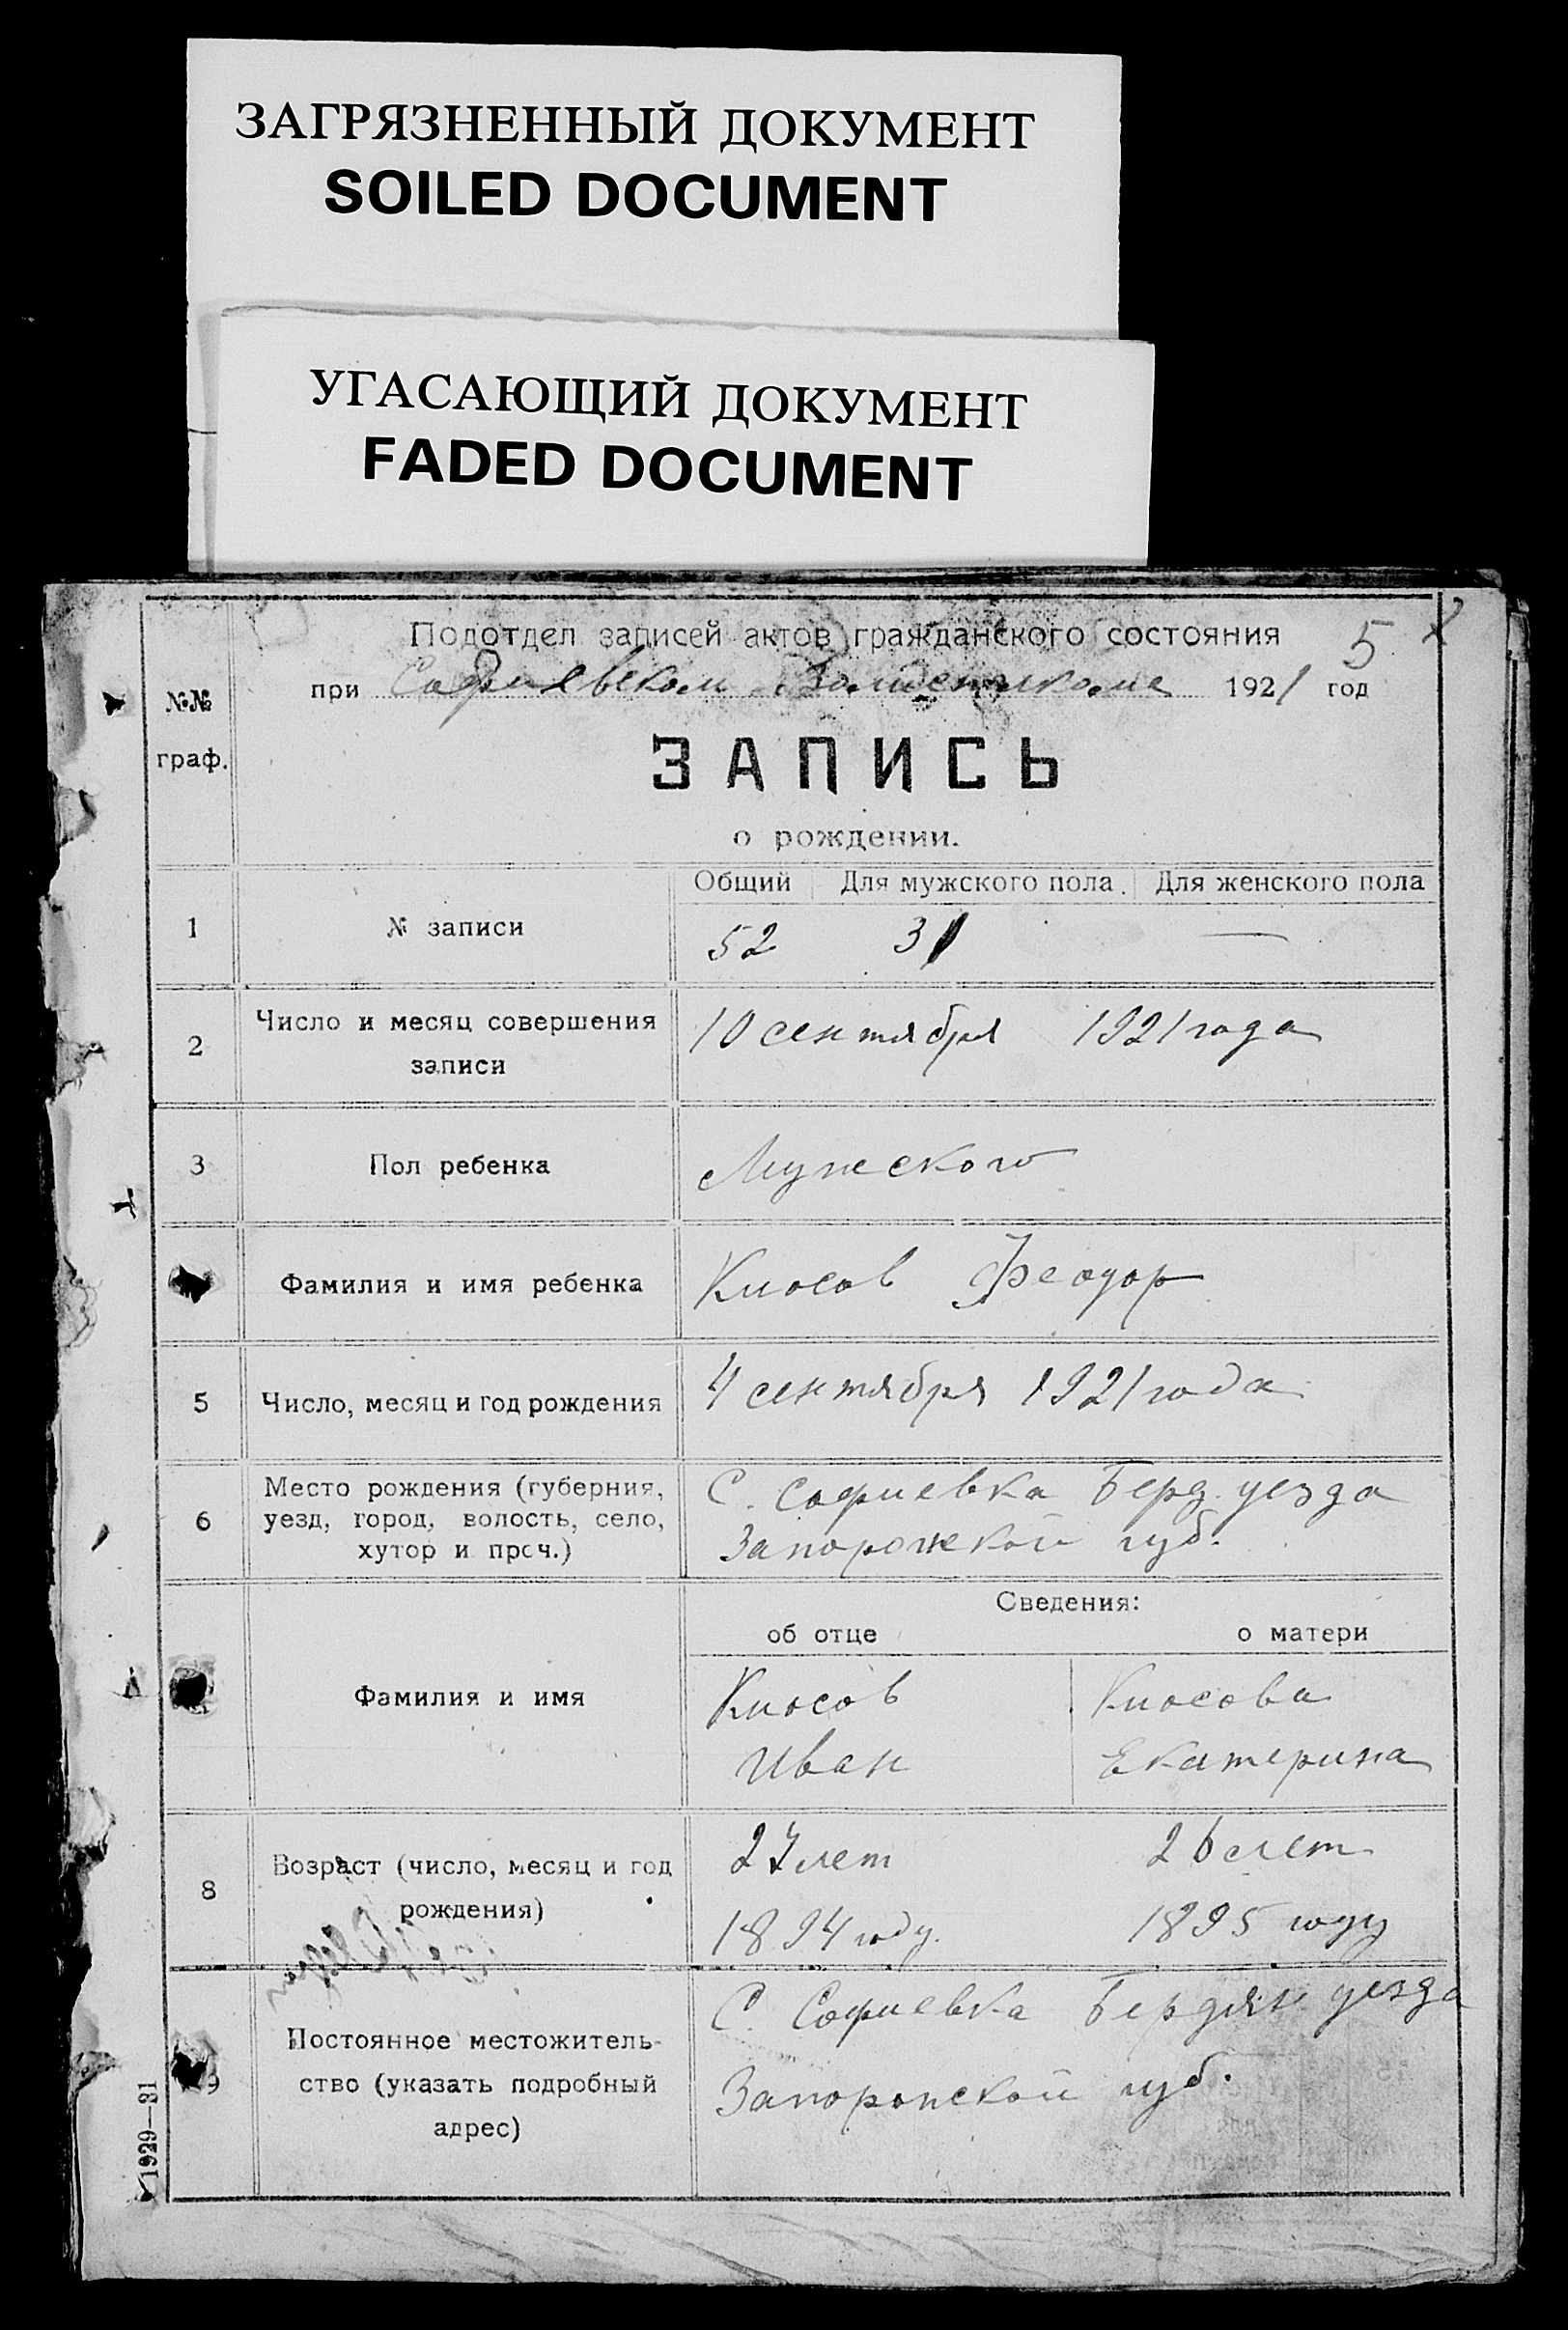 ЗАГРЯЗНЕННЫЙ ДОКУМЕНТ
SOILED DOCUMENT
УГАСАЮЩИЙ ДОКУМЕНТ
FADED DOCUMENT
5
Подотдел записей актов гражданского состояния
при Софиевском 1921 год
№№ граф.
ЗАПИСЬ
о рождении.
Общий Для мужского пола. Для женского пола
1 № записи 52 31 —
2 Число и месяц совершения 10 сентября 1921 года
записи
3 Пол ребенка Мужского
Фамилия и имя ребенка Киосов Феодор
5 Число, месяц и год рождения 4 сентября 1921 года
Место рождения (губерния, С. Софиевка Берд. уезда
6 уезд, город, волость, село,
хутор и проч.) Запорожской губ.
Сведения:
об отце о матери
Фамилия и имя Киосов Киосова
Иван Екатерина
8 Возраст (число, месяц и год 27 лет 26 лет
рождения) 1894 году. 1895 году
9 Постоянное местожитель- С. Софиевка Бердян уезда
ство (указать подробный Запорожской губ.
адрес)
1929—31